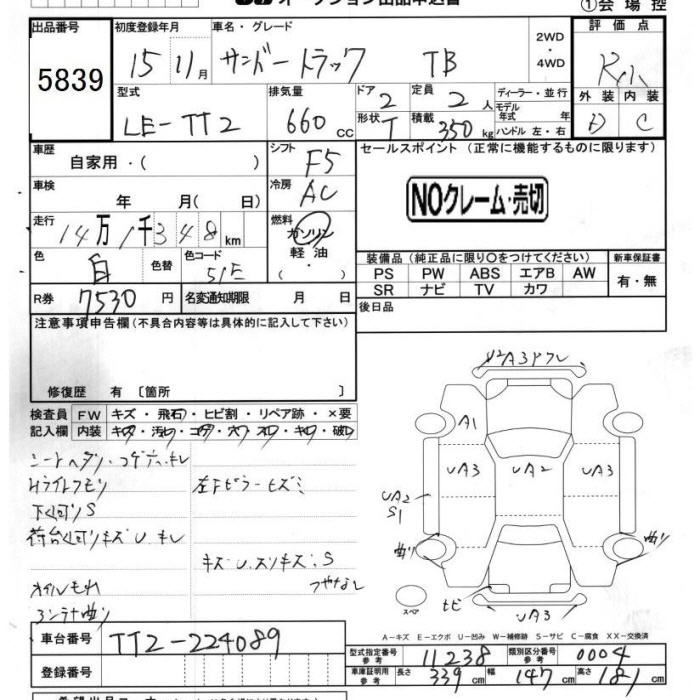 オークション出品申込書
①会場控
出品番号 5839
初度登録年月 15 11月
車名・グレード サンバートラック TB
2WD・4WD
評価点
型式 LE-TT2
排気量 660cc
ドア 2
形状 T
定員 2人
積載 350kg
ディーラー・並行
モデル年式 年
ハンドル 左・右
外装 D
内装 C
車歴 自家用・( )
シフト F5
セールスポイント (正常に機能するものに限ります)
車検 年 月( 日)
冷房 AC
NOクレーム・売切
走行 14万1千348km
燃料 ガソリン
軽油
・( )
色 白
色替
色コード 51E
装備品(純正品に限り○をつけてください)
新車保証書
PS PW ABS エアB AW
SR ナビ TV カワ
有・無
R券 7530円
名変通知期限 月 日
後日品
注意事項申告欄(不具合内容等は具体的に記入して下さい)
修復歴 有 〔箇所 〕
検査員記入欄
FW キズ・飛石・ヒビ割・リペア跡・×要
内装 キズ・汚レ・コゲ・穴・スレ・キレ・破レ
シートヘタリ・コゲ穴・キレ
Hライトクモリ
左Fピラーヒズミ
下回リS
荷台回リキズU.キレ
キズU.スリキズ.S
ツヤなし
オイルモれ
コンテナ曲り
A1
UA3
UA2
UA3
UA2
S1
曲り
曲り
スペア
ヒビ
UA3
A-キズ E-エクボ U-凹み W-補修跡 S-サビ C-腐食 XX-交換済
車台番号 TT2-224089
型式指定番号 参考 11238
類別区分番号 参考 0004
登録番号
車庫証明用 参考 長さ 339cm 幅 147cm 高さ 181cm